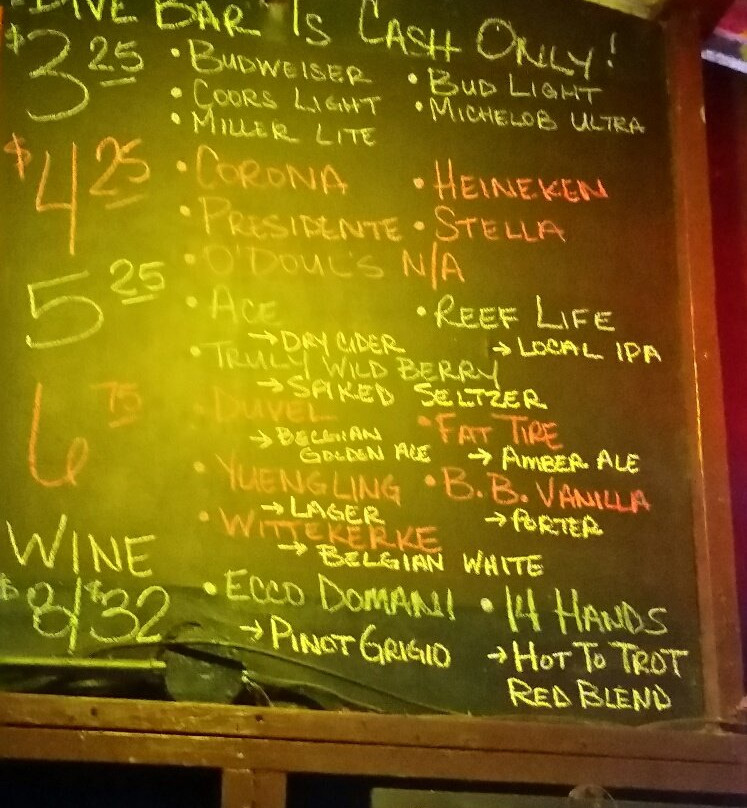 DIVE BAR IS CASH ONLY!
$3 25
• BUDWEISER • BUD LIGHT
• COORS LIGHT • MICHELOB ULTRA
• MILLER LITE
$4 25
• CORONA • HEINEKEN
• PRESIDENTE • STELLA
• O'DOUL'S N/A
5 25
• ACE • REEF LIFE
→ DRY CIDER → LOCAL IPA
• TRULY WILD BERRY
→ SPIKED SELTZER
6 75
DUVEL • FAT TIRE
→ BELGIAN GOLDEN ALE → AMBER ALE
• YUENGLING • B.B. VANILLA
→ LAGER → PORTER
• WITTEKERKE
→ BELGIAN WHITE
WINE
$8/$32
• ECCO DOMANI • 14 HANDS
→ PINOT GRIGIO → HOT TO TROT
RED BLEND